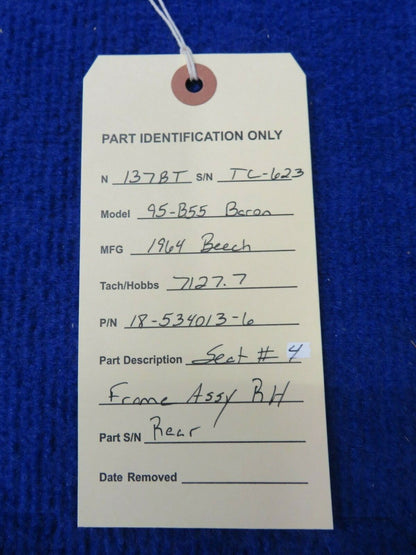 PART IDENTIFICATION ONLY
N 137BT S/N TC-623
Model 95-B55 Baron
MFG 1964 Beech
Tach/Hobbs 7127.7
P/N 18-534013-6
Part Description Seat # 4
Frame Assy RH
Part S/N Rear
Date Removed